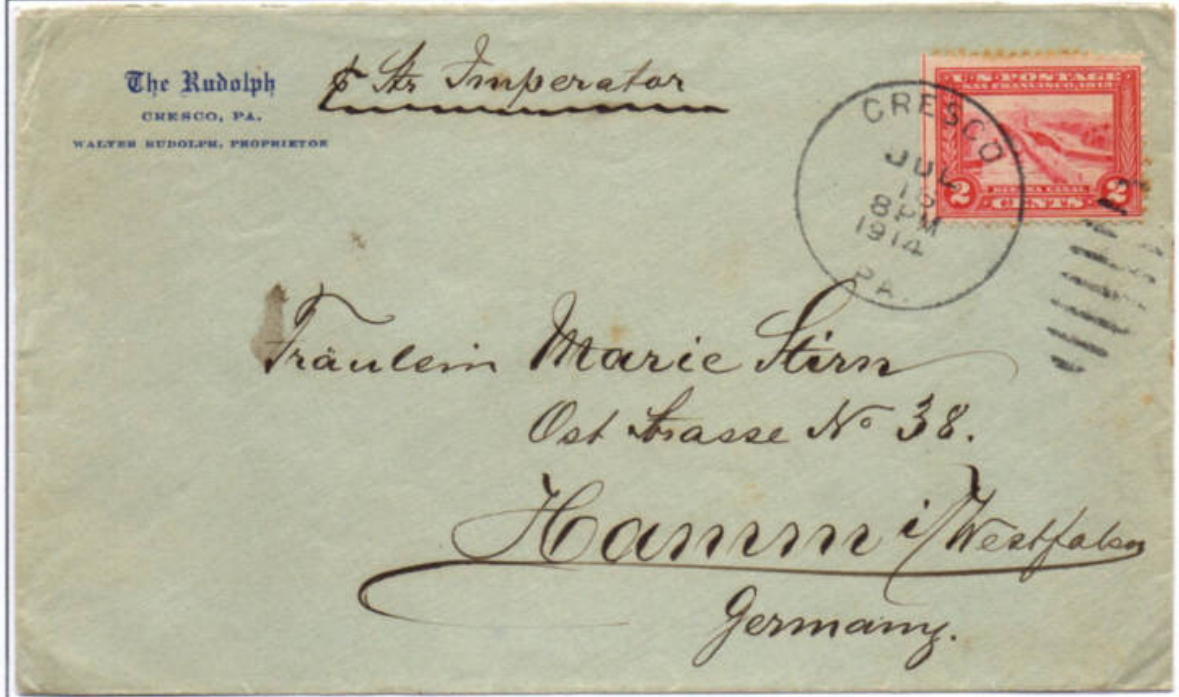 The Rudolph
CRESCO, PA.
WALTER RUDOLPH, PROPRIETOR
p Str Imperator
U·S·POSTAGE
SAN FRANCISCO 1915
PANAMA CANAL
2 CENTS 2
CRESCO
JUL
8 PM
1914
PA.
Fräulein Marie Stirn
Ost Strasse No 38.
Hamm i/Westfalen
Germany.